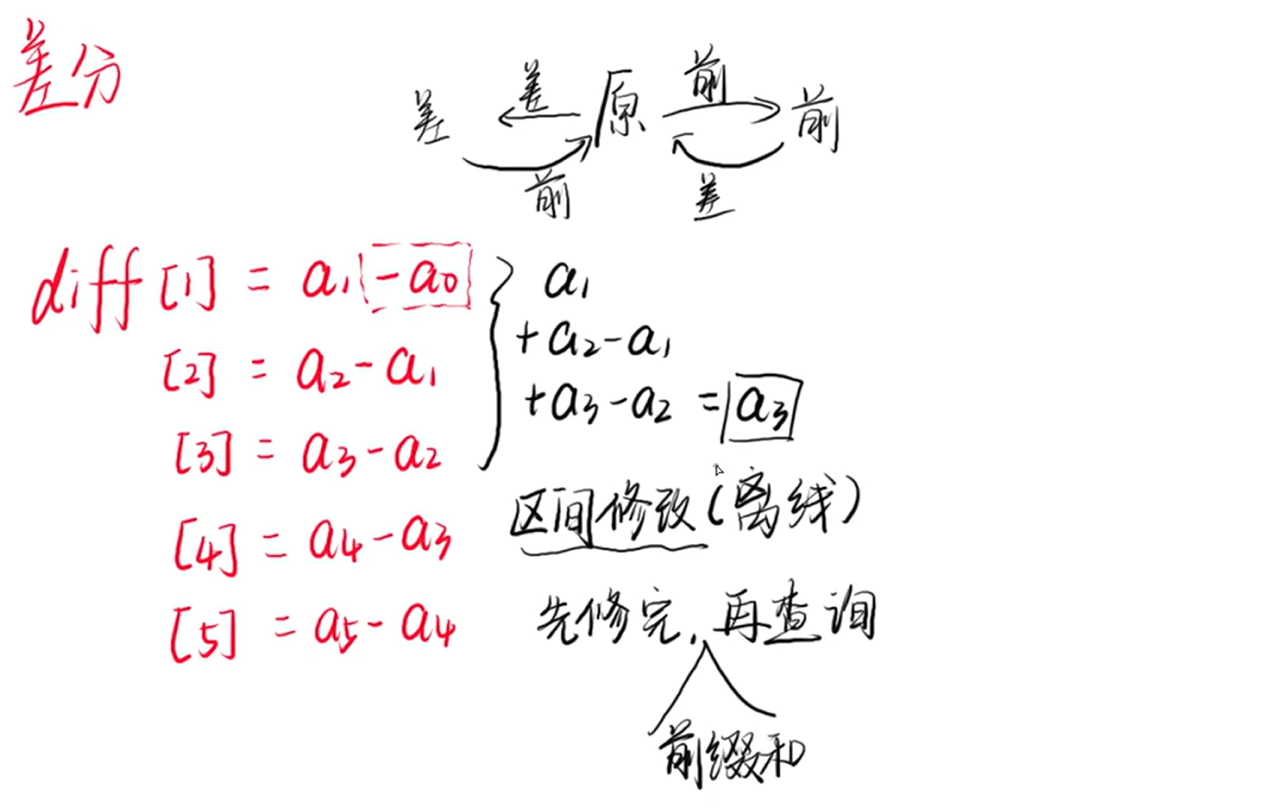 差分
差 前
差 原 前
前 差
diff [1] = a₁ -a₀
[2] = a₂-a₁
[3] = a₃-a₂
[4] = a₄-a₃
[5] = a₅-a₄
a₁
+a₂-a₁
+a₃-a₂ = a₃
区间修改(离线)
先修完,再查询
前缀和